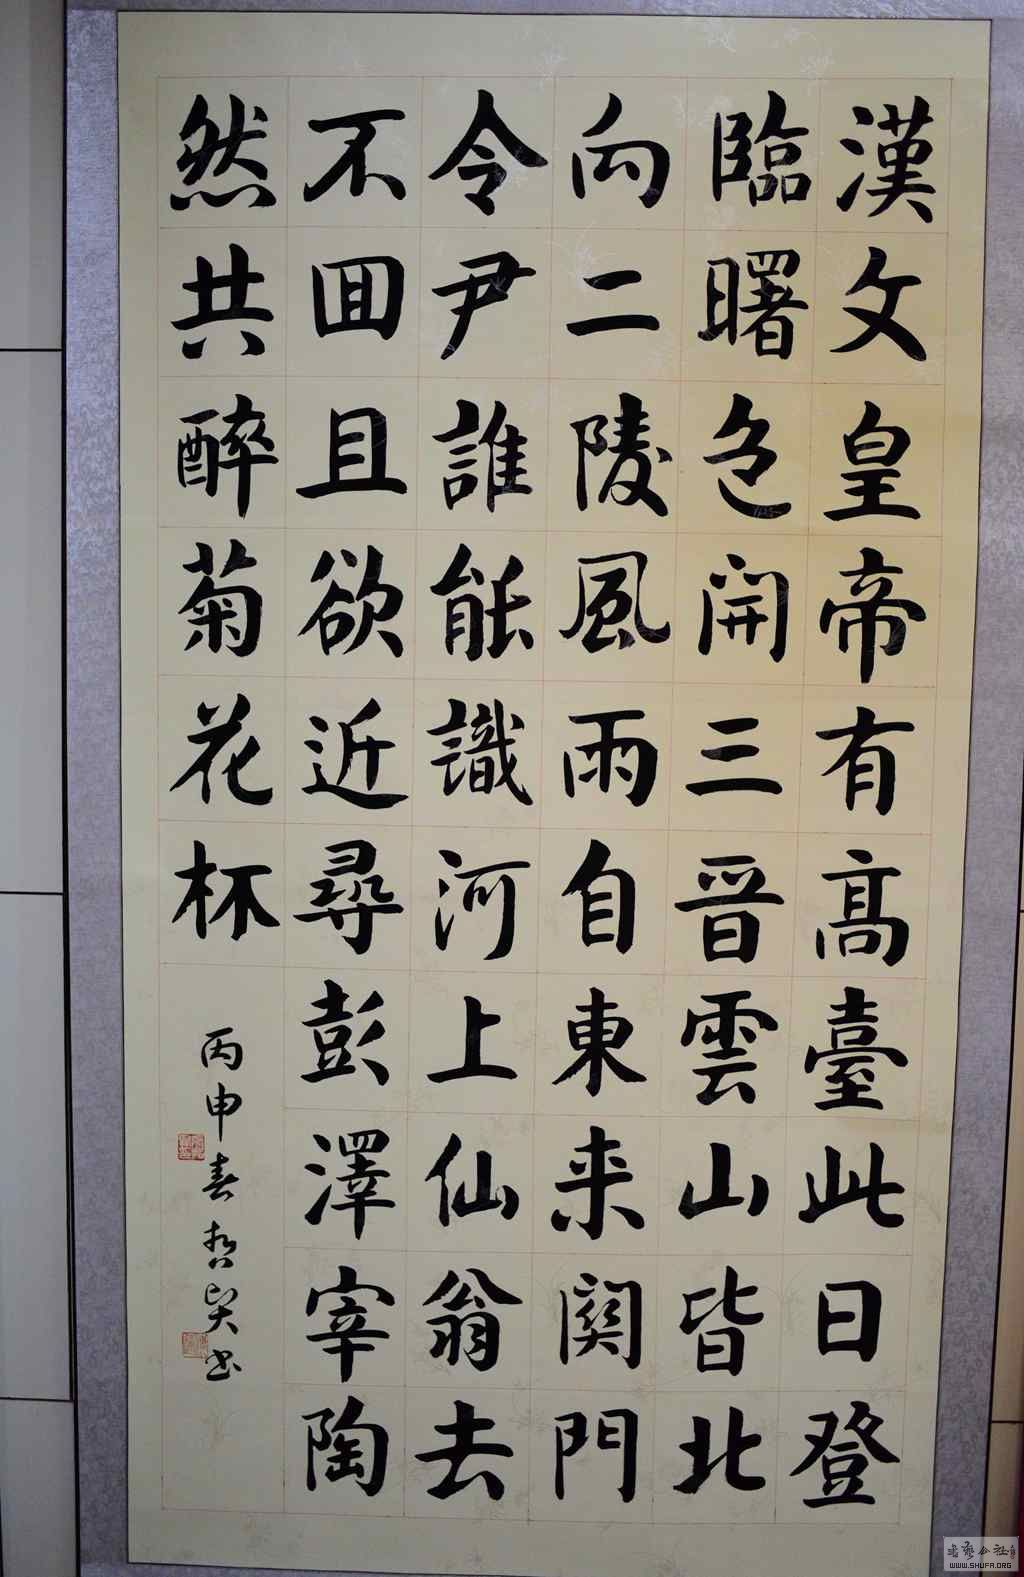 漢文皇帝有髙臺此日登
臨曙色開三晋雲山皆北
向二陵風雨自東来關門
令尹誰能識河上仙翁去
不囬且欲近尋彭澤宰陶
然共醉菊花杯
丙申春哲书
书艺公社
WWW.SHUFA.ORG